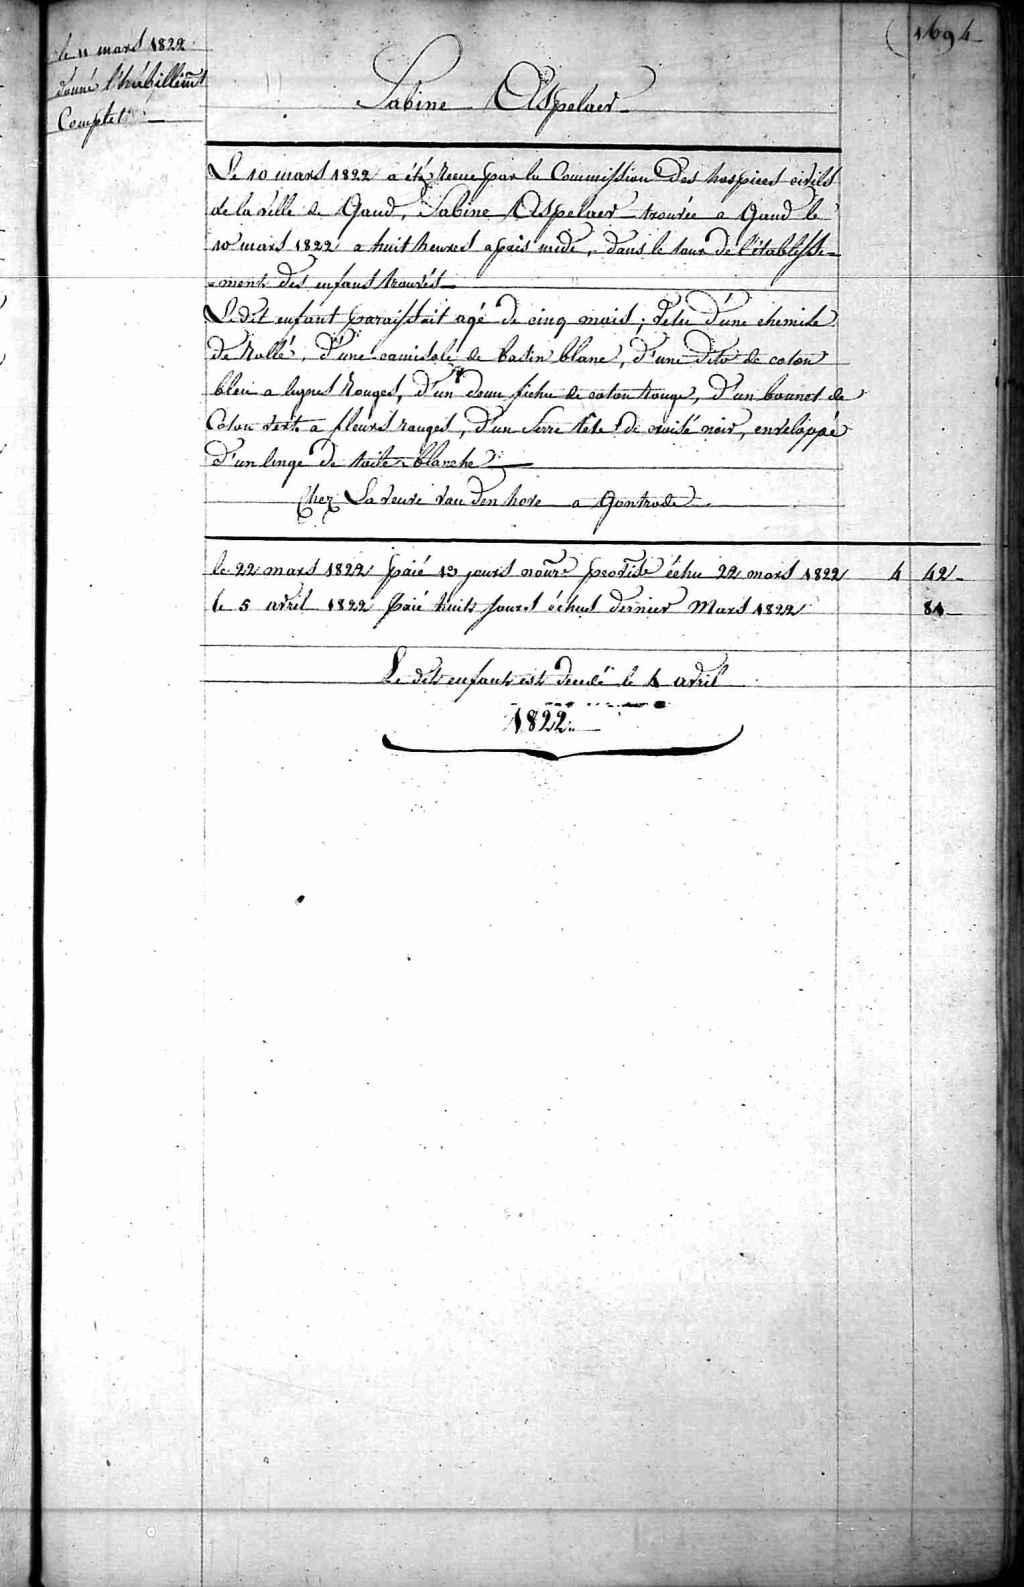 1694
le 11 mars 1822
donné l'habillemt
Complet
Sabine Aspelaer
Le 10 mars 1822 a été recue par la Commission Des hospices civils
de la ville de Gand, Sabine Aspelaer trouvée a Gand le
10 mars 1822 a huit heures après midi, dans le tour de l'établisse=
=ment des enfans trouvés
Le dit enfant paraissait agé de cinq mois; vetu d'une chemise
de d'une camisole de basin blanc, d'une dito de coton
bleu a lignes rouges, d'un demi fichu de coton rouge, D'un bonnet de
Coton vert a fleurs rouges, d'un serre tête de noir, enveloppée
d'un linge de toile blanche
Chez La veuve van den hove a Gontrode
le 22 mars 1822 paié 13 jours échu 22 mars 1822 4 42
le 5 avril 1822 Paié huit jours échus dernier Mars 1822 84
Le dit enfant est decedé le 4 avril
1822